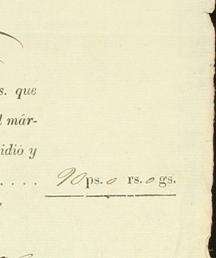 s. que
l már-
idió y
. . . . 90 ps. 0 rs. 0 gs.